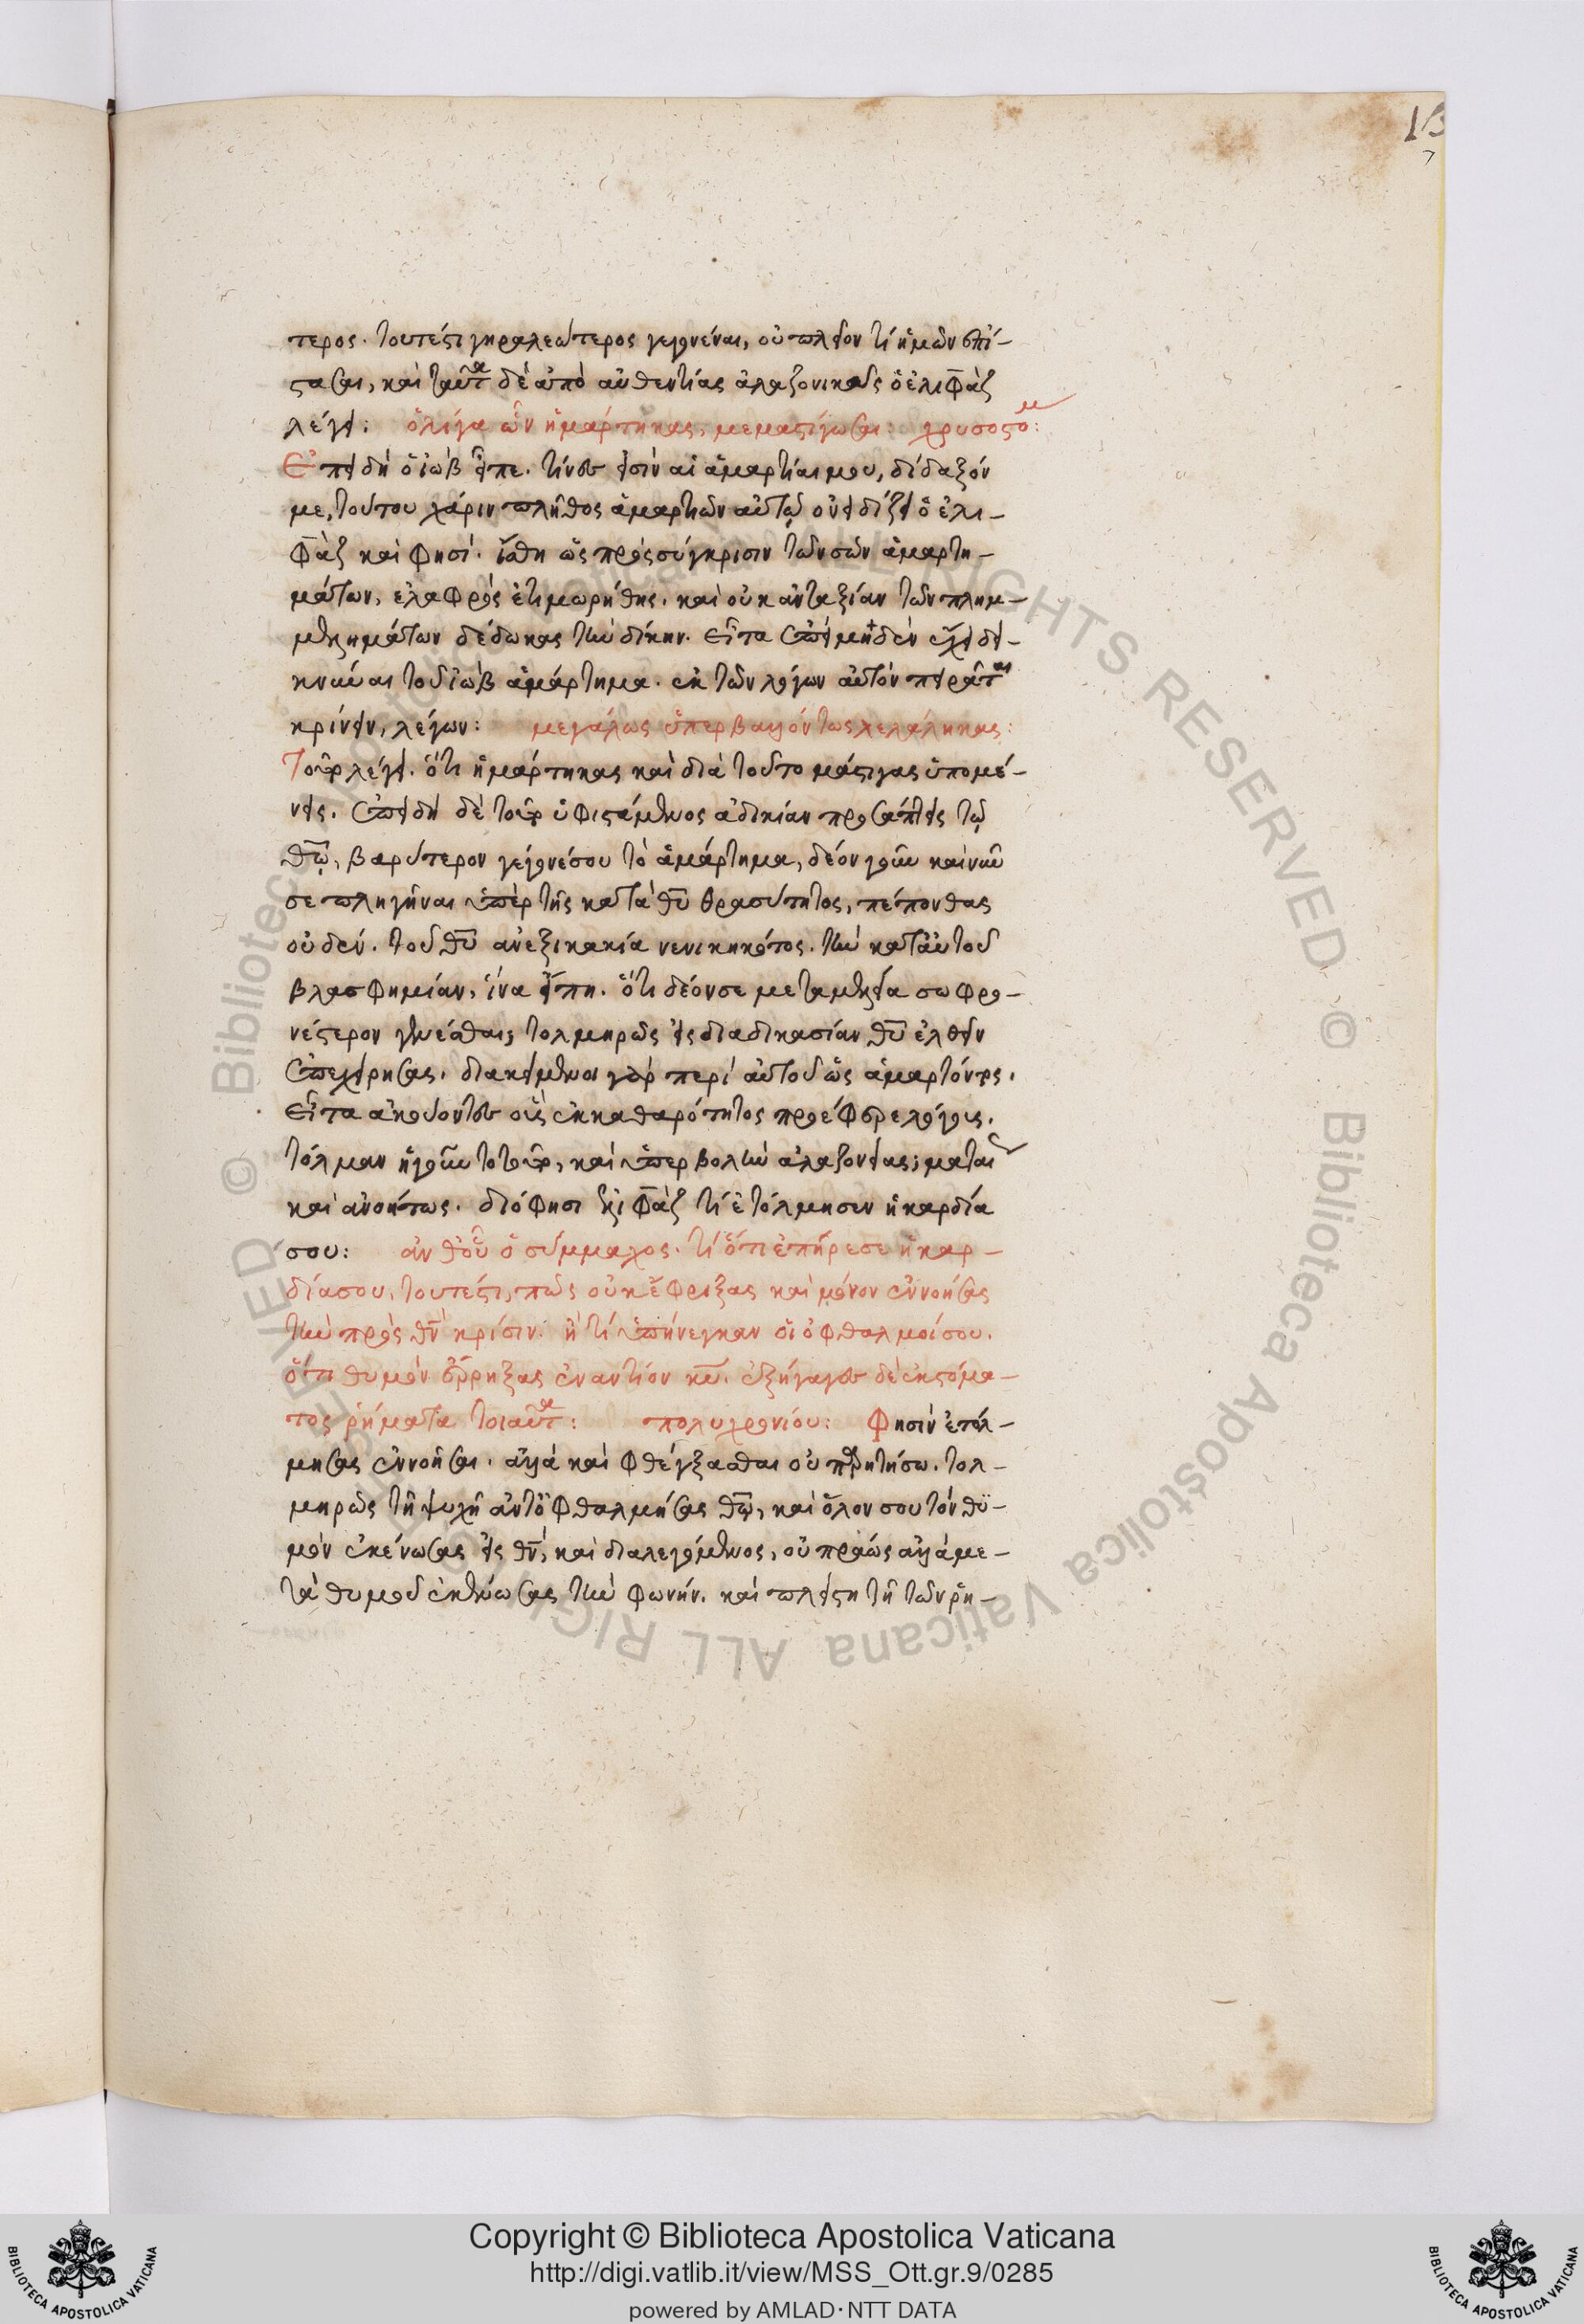 13
7
τερος. τουτέστι γηραλεώτερος γεγονέναι, οὐ πλεῖον τί ἡμῶν ἐπί-
στασαι, καὶ ταῦτα δὲ ἀπὸ αὐθεντίας ἀλαζονικῶς ὁ ἐλιφὰζ
λέγει: ὀλίγα ὧν ἡμάρτηκας, μεμαστίγωσαι: χρυσοστομ:
Ἐπειδὴ ὁ ἰὼβ εἶπε. τίνες εἰσὶν αἱ ἁμαρτίαι μου, δίδαξόν
με, τούτου χάριν πλῆθος ἁμαρτιῶν αὐτῷ ὀνειδίζει ὁ ἐλι-
φὰζ καὶ φησί. ἴσθι ὡς πρὸς σύγκρισιν τῶν σῶν ἁμαρτη-
μάτων, ἐλαφρὸς ἐτιμωρήθης. καὶ οὐκ ἀνταξίαν τῶν πλημ-
μελημάτων δέδωκας τὴν δίκην. Εἶτα ἐπεὶ μηδὲν εἶχε δει-
κνύναι τοῦ ἰὼβ ἁμάρτημα. ἐκ τῶν λόγων αὐτὸν πειρᾶται
κρίνειν, λέγων: μεγάλως ὑπερβαλλόντως λελάληκας:
Τοῦτο λέγει. ὅτι ἡμάρτηκας καὶ διὰ τοῦτο μάστιγας ὑπομέ-
νεις. ἐπειδὴ δὲ τοῦτο ὑφιστάμενος ἀδικίαν προσάπτεις τῷ
θῷ, βαρύτερον γέγονέ σου τὸ ἁμάρτημα, δέον γοῦν καὶ νῦν
σε πληγῆναι ὑπὲρ τῆς κατὰ θυ θρασύτητος, πέπονθας
οὐδέν. τοῦ θυ ἀνεξικακία νενικηκότος. τὴν κατ' αὐτοῦ
βλασφημίαν, ἵνα εἴπη. ὅτι δέον σε μεταμελεία σωφρο-
νέστερον γενέσθαι; τολμηρῶς εἰς διαδικασίαν θυ ἐλθεῖν
ἐπεχείρησας. διακείμενοι γὰρ περὶ αὐτοῦ ὡς ἁμαρτόντος.
Εἶτα ἀκούοντες οὓς ἐκ καθαρότητος προέφερε λόγους.
τόλμαν ἡγοῦντο τοῦτο, καὶ ὑπερβολὴν ἀλαζονείας; ματαίαν
καὶ ἀνοήτως. διό φησι ἐλιφὰζ τί ἐτόλμησεν ἡ καρδία
σου: ἀνθ' οὗ ὁ σύμμαχος. τί ὅτι ἐπῆρέ σε ἡ καρ-
δία σου, τουτέστι, πῶς οὐκ ἔφριξας καὶ μόνον ἐννοήσας
τὴν πρὸς θν κρίσιν. ἢ τί ἐπήνεγκαν οἱ ὀφθαλμοί σου.
ὅτι θυμὸν ἔρρηξας ἐναντίον κυ. ἐξήγαγες δὲ ἐκ στόμα-
τος ῥήματα τοιαῦτα: πολυχρονίου: Φησὶν ἐτόλ-
μησας ἐννοῆσαι. ἀλλὰ καὶ φθέγξασθαι οὐ παρῃτήσω. τολ-
μηρῶς τῇ ψυχῇ ἀντοφθαλμήσας θῷ, καὶ ὅλον σου τὸν θυ-
μὸν ἐκένωσας εἰς θν, καὶ διαλεγόμενος, οὐ πράως ἀλλὰ με-
τὰ θυμοῦ ἐκτείνας τὴν φωνήν. καὶ πλείστη τῇ τῶν ῥη-
© Biblioteca Apostolica Vaticana ALL RIGHTS RESERVED
Copyright © Biblioteca Apostolica Vaticana
http://digi.vatlib.it/view/MSS_Ott.gr.9/0285
powered by AMLAD·NTT DATA
BIBLIOTECA APOSTOLICA VATICANA
BIBLIOTECA APOSTOLICA VATICANA